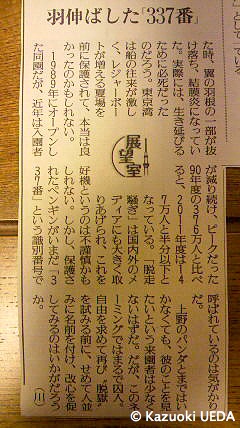 羽伸ばした「337番」
展望室
た時、翼の羽根の一部が抜
け落ち、結膜炎になってい
た。実際には、生き延びる
ために必死だった
のだろう。東京湾
は船の往来が激し
く、レジャーボー
トが増える夏場を
前に保護されて、本当は良
かったのかもしれない。
1989年にオープンし
た同園だが、近年は入園者
が減り続け、ピークだった
90年度の376万人と比べ
ると、2011年度は14
7万人と半分以下と
なっている。「脱走
騒ぎ」は国内外のメ
ディアにも大きく取
りあげられ、これを
好機というのは不謹慎かも
しれない。しかし、保護さ
れたペンギンがいまだ「3
37番」という識別番号で
呼ばれているのは気がかり
だ。
上野のパンダとまではい
かなくても、彼のことを見
たいという来園者は少なく
ないはずだ。だが、このネ
ーミングではまるで囚人。
自由を求めて再び「脱獄」
を試みる前に、せめて人並
みに名前を付け、改心を促
してみるのはいかがだろう
か。
© Kazuoki UEDA